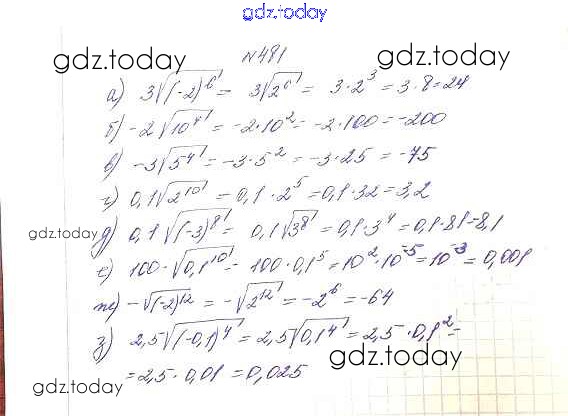 gdz.today
№481
gdz.today gdz.today
а) 3√(-2)⁶ = 3√2⁶ = 3·2³ = 3·8=24
б) -2√10⁴ = -2·10² = -2·100 = -200
в) -3√5⁴ = -3·5² = -3·25 = -75
г) 0,1√2¹⁰ = 0,1·2⁵ = 0,1·32 = 3,2
gdz.today
д) 0,1√(-3)⁸ = 0,1√3⁸ = 0,1·3⁴ = 0,1·81=8,1
е) 100·√0,1¹⁰ = 100·0,1⁵ = 10²·10⁻⁵ = 10⁻³ = 0,001
ж) -√(-2)¹² = -√2¹² = -2⁶ = -64
з) 2,5√(-0,1)⁴ = 2,5√0,1⁴ = 2,5·0,1² =
gdz.today
= 2,5·0,01 = 0,025
gdz.today
gdz.today